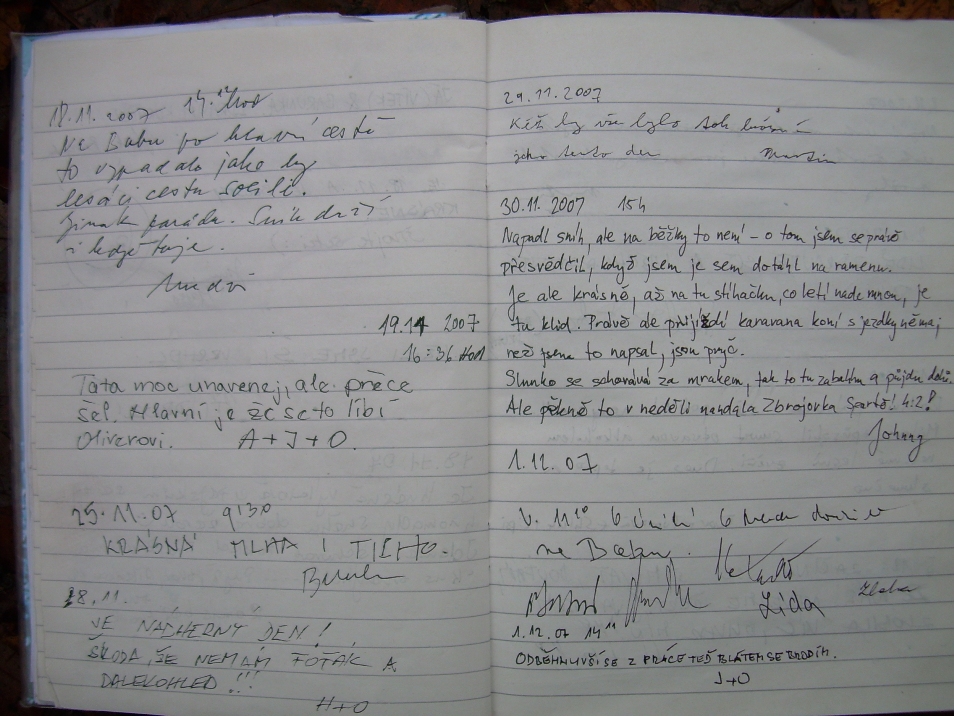 18.11.2007 14.
Na Babu po hlavní cestě
to vypadalo jako by
lesáci cestu solili.
Jinak paráda. Sníh drží
19.11 2007
16:36 Hod
Táta moc unavenej, ale přece
šel. Hlavní je že se to líbí
Oliverovi. A+J+O.
25.11.07 9:30
KRÁSNÁ MLHA I TICHO.
28.11.
JE NÁDHERNÝ DEN!
ŠKODA, ŽE NEMÁM FOŤÁK A
DALEKOHLED!!!
H+O
29.11.2007
Kéž by vše bylo tak krásné
jako tento den Martin
30.11.2007 15h
Napadl sníh, ale na běžky to není – o tom jsem se právě
přesvědčil, když jsem je sem dotáhl na ramenu.
Je ale krásně, až na tu stíhačku, co letí nade mnou, je
tu klid. Právě ale přijíždí karavana koní s jezdkyněma;
než jsem to napsal, jsou pryč.
Slunko se schovává za mrakem, tak to tu zabalím a půjdu dolů.
Ale pěkně to v neděli nandala Zbrojovka Spartě! 4:2!
Johnny
1.12.07
V. 11
na Babu.
Lída
1.12.07 14 11
ODBĚHNUVŠÍ SE Z PRÁCE TEĎ BLÁTEM SE BRODÍM.
J+O